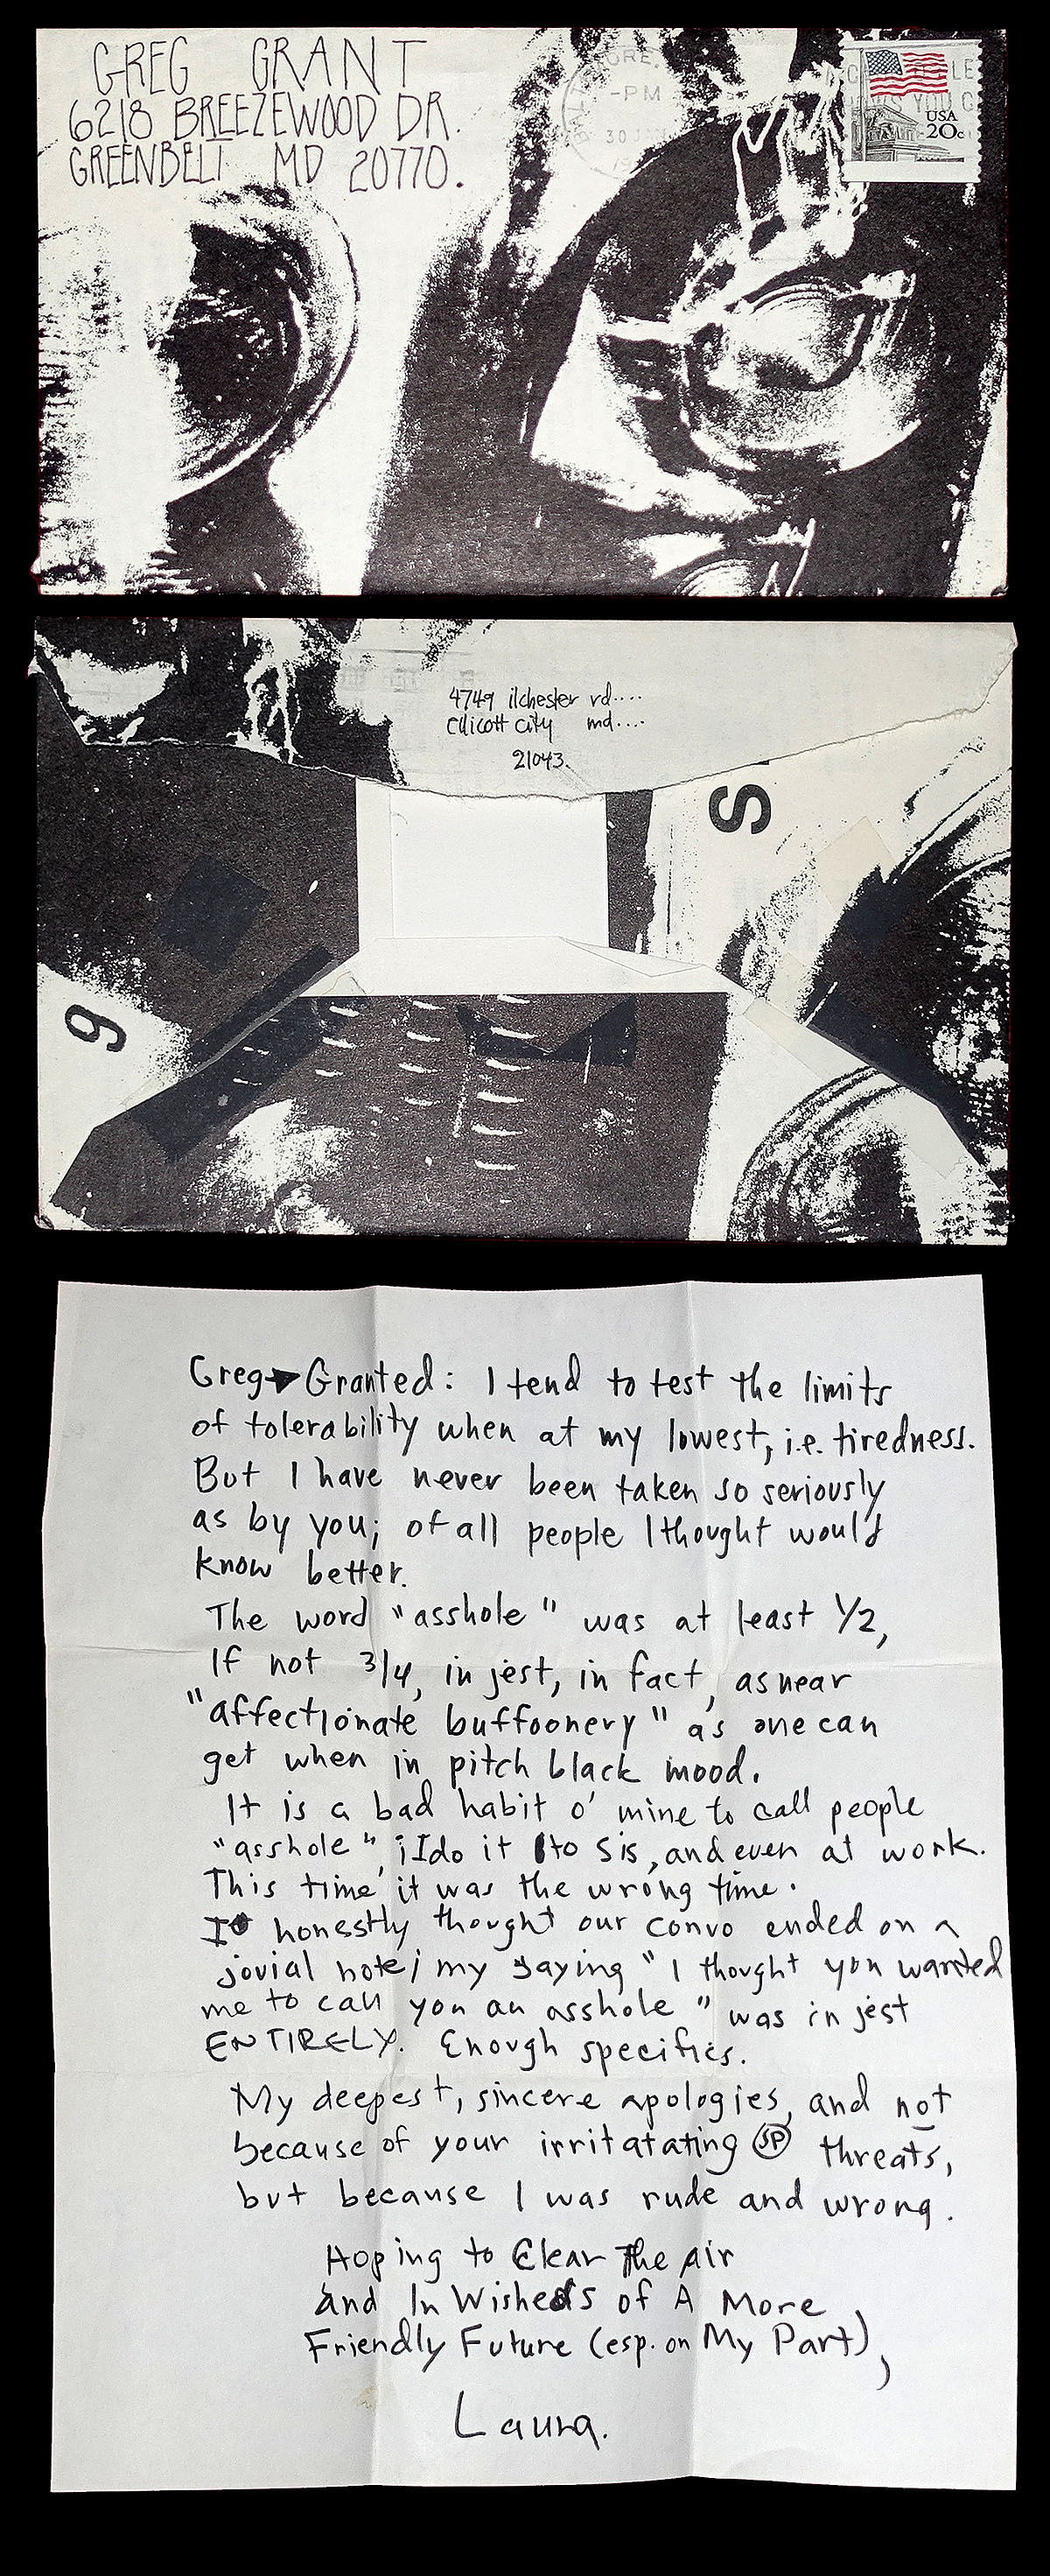 GREG GRANT
6218 BREEZEWOOD DR.
GREENBELT MD 20770.
ORE,
-PM
30
USA
20c
4749 ilchester rd....
Ellicott City md....
21043.
S
9
Greg→Granted: I tend to test the limits
of tolerability when at my lowest, i.e. tiredness.
But I have never been taken so seriously
as by you; of all people I thought would
know better.
The word "asshole" was at least 1/2,
If not 3/4, in jest, in fact, as near
"affectionate buffoonery" as one can
get when in pitch black mood.
It is a bad habit o' mine to call people
"asshole"; I do it to Sis, and even at work.
This time it was the wrong time.
I honestly thought our convo ended on a
jovial note; my saying "I thought you wanted
me to call you an asshole" was in jest
ENTIRELY. Enough specifics.
My deepest, sincere apologies, and not
because of your irritatating SP threats,
but because I was rude and wrong.
Hoping to Clear The Air
and In Wishes of A More
Friendly Future (esp. on My Part),
Laura.